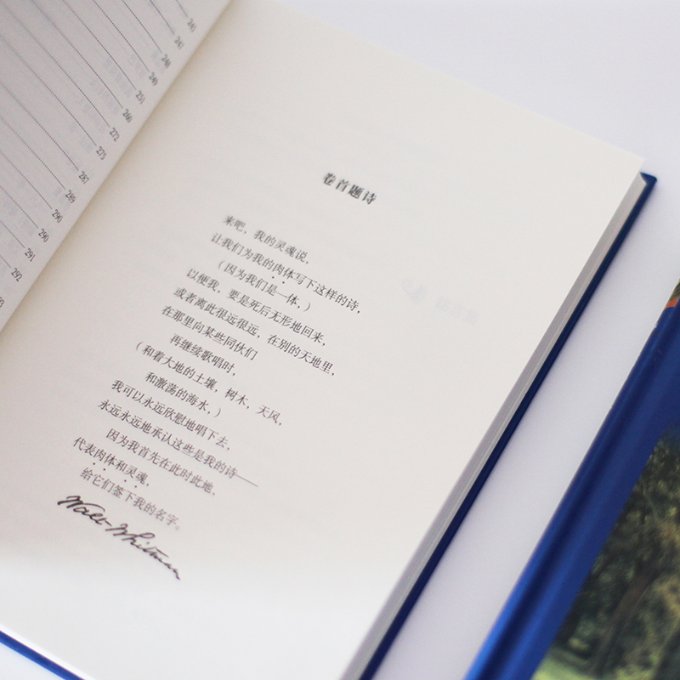 245
247
248
249
251
260
272
275
282
289
290
290
291
292
293
卷首题诗
来吧，我的灵魂说，
让我们为我的肉体写下这样的诗，
（因为我们是一体，）
以便我，要是死后无形地回来，
或者离此很远很远，在别的天地里，
在那里向某些同伙们
再继续歌唱时，
（和着大地的土壤，树木，天风，
和激荡的海水，）
我可以永远欣慰地唱下去，
永远永远地承认这些是我的诗——
因为我首先在此时此地，
代表肉体和灵魂，
给它们签下我的名字。
Walt Whitman